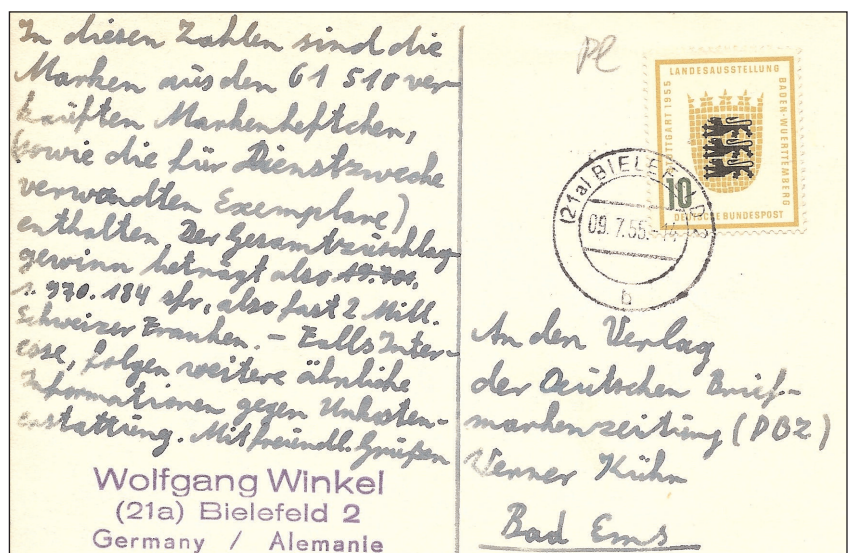 In diesen Zahlen sind die
Marken aus den 61 510 ver-
kauften Markenheftchen,
(sowie die für Dienstzwecke
verwandten Exemplare)
enthalten Der Gesamtzuschlag-
gewinn beträgt also 19.701,
1.970.184 sfr, also fast 2 Mill.
Schweizer Franken. – Falls Inter-
esse, folgen weitere ähnliche
Informationen gegen Unkosten-
erstattung. Mit freundl. Grüßen
Wolfgang Winkel
(21a) Bielefeld 2
Germany / Alemanie
LANDESAUSSTELLUNG
BADEN-WUERTTEMBERG
STUTTGART 1955
10
DEUTSCHE BUNDESPOST
(21a) BIELEFELD 2
09.7.55.-14
b
An den Verlag
der Deutschen Brief-
markenzeitung (DBZ)
Werner Kühn
Bad Ems